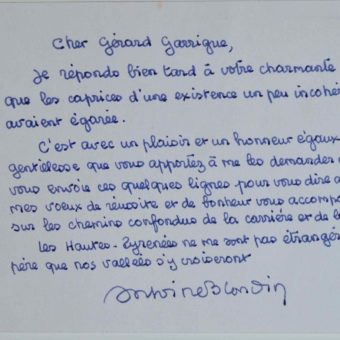 Cher Gérard Garrigue,
Je réponds bien tard à votre charmante
que les caprices d'une existence un peu incohé
avaient égarée.
C'est avec un plaisir et un honneur égaux
gentillesse que vous apportez à me les demander
vous envoie ces quelques lignes pour vous dire
mes voeux de réussite et de bonheur vous accomp
sur les chemins confondus de la carrière et de l
Les Hautes-Pyrénées ne me sont pas étrangè
père que nos vallées s'y croiseront
Antoine Blondin